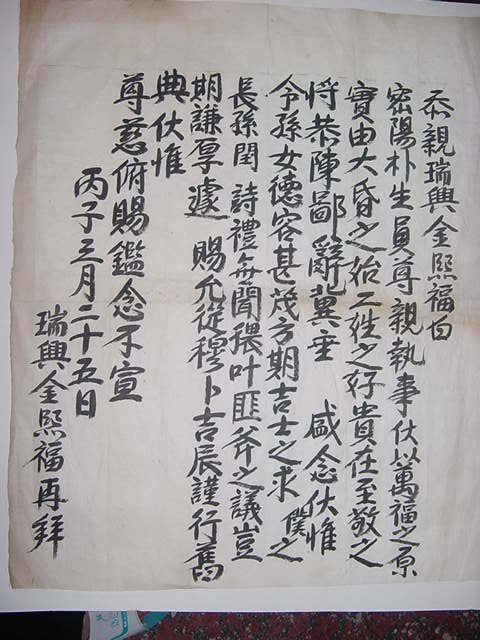 忝親瑞興金熙福白
密陽朴生員尊親執事伏以萬福之原
實由大昏之始二姓之好貴在至敬之
將恭陳鄙辭冀垂 盛念伏惟
令孫女德容甚茂方期吉士之求 僕之
長孫閏 詩禮無聞猥叶匪斧之議豈
期謙厚遽 賜允從穆卜吉辰謹行舊
典伏惟
尊慈俯賜鑑念不宣
丙子三月二十五日
瑞興金熙福再拜